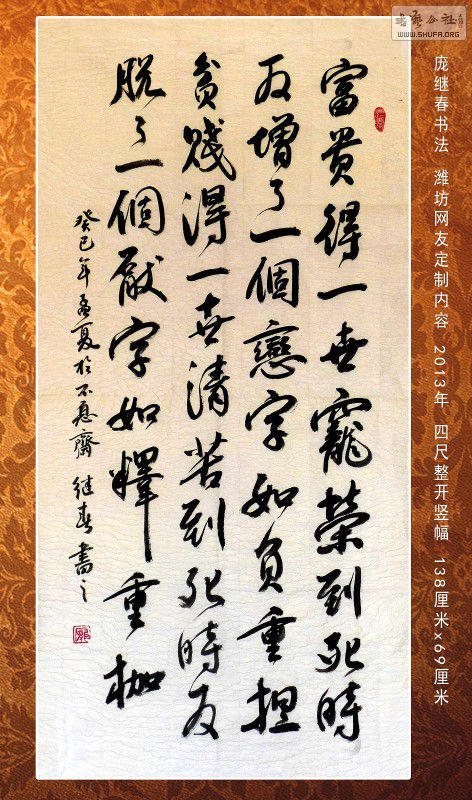 书艺公社
WWW.SHUFA.ORG
庞继春书法 潍坊网友定制内容 2013年 四尺整开竖幅 138厘米x69厘米
富貴得一世寵榮到死時
反增了一個戀字如負重担
貧賤得一世清苦到死時反
脫了一個厭字如釋重枷
癸巳年孟夏於不息齋 继春書之